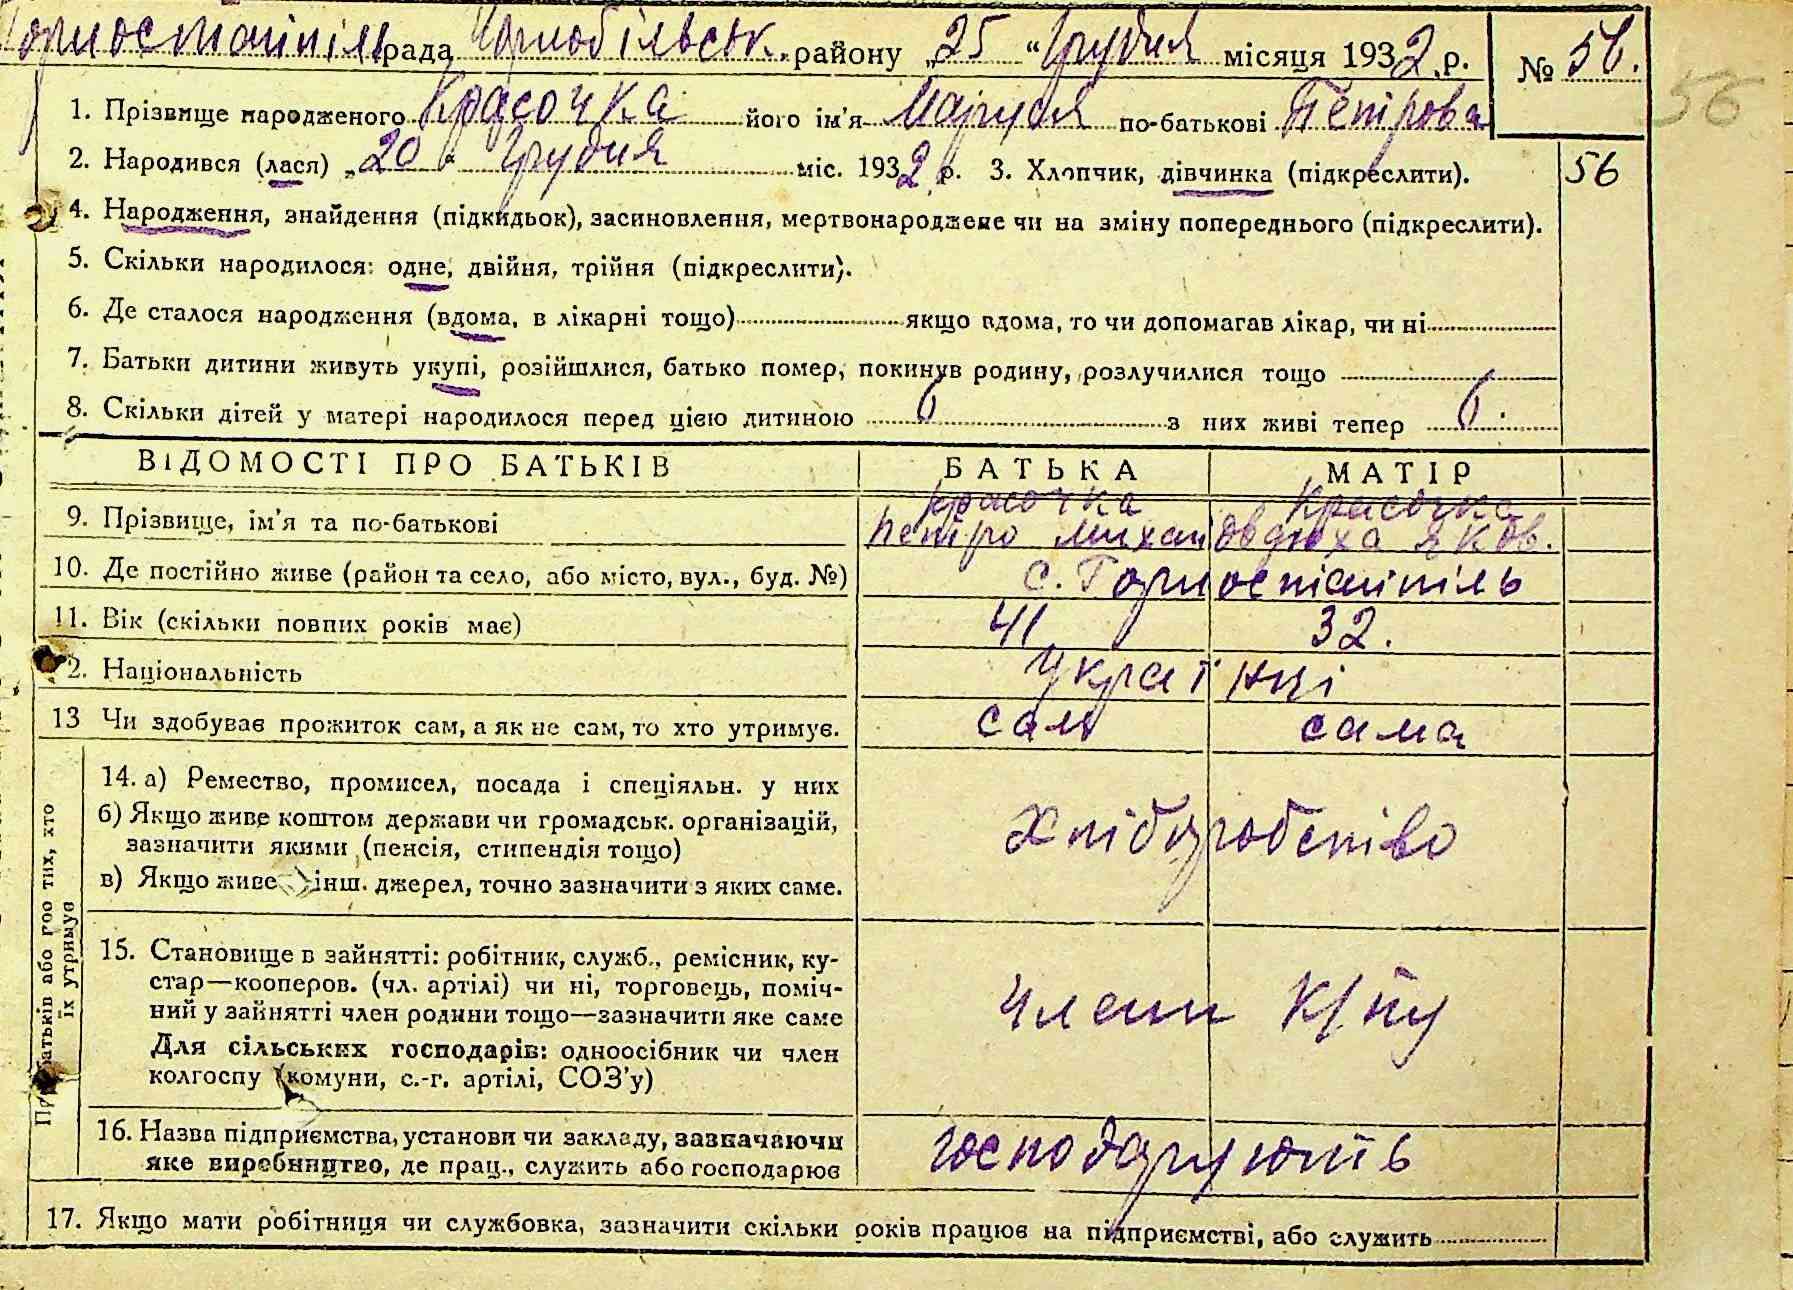 Горностайпіль рада Чорнобільськ. району „25“ Грудня місяця 1932 р. № 56.
56
1. Прізвище народженого Красочка його ім'я Маруся по-батькові Петрова
2. Народився (лася) „20“ Грудня міс. 1932 р. 3. Хлопчик, дівчинка (підкреслити). 56
4. Народження, знайдення (підкидьок), засиновлення, мертвонароджене чи на зміну попереднього (підкреслити).
5. Скільки народилося: одне, двійня, трійня (підкреслити).
6. Де сталося народження (вдома, в лікарні тощо) якщо вдома, то чи допомагав лікар, чи ні
7. Батьки дитини живуть укупі, розійшлися, батько помер, покинув родину, розлучилися тощо
8. Скільки дітей у матері народилося перед цією дитиною 6 з них живі тепер 6.
ВІДОМОСТІ ПРО БАТЬКІВ БАТЬКА МАТІР
Красочка Красочка
9. Прізвище, ім'я та по-батькові Петро Михай Овдюха Яков.
10. Де постійно живе (район та село, або місто, вул., буд. №) с. Горностайпіль
11. Вік (скільки повних років має) 41 32.
12. Національність Українці
13 Чи здобував прожиток сам, а як не сам, то хто утримує. сам сама
14. а) Ремество, промисел, посада і спеціяльн. у них
б) Якщо живе коштом держави чи громадськ. організацій,
зазначити якими (пенсія, стипендія тощо) Хліборобство
в) Якщо живе інш. джерел, точно зазначити з яких саме.
батьків або про тих, хто
їх утримує
15. Становище в зайнятті: робітник, служб., ремісник, ку-
стар—кооперов. (чл. артілі) чи ні, торговець, поміч-
ний у зайнятті член родини тощо—зазначити яке саме Члени К/гпу
Для сільських господарів: одноосібник чи член
колгоспу (комуни, с.-г. артілі, СОЗ'у)
16. Назва підприємства, установи чи закладу, зазначаючи
яке виробництво, де прац., служить або господарює господарюють
17. Якщо мати робітниця чи службовка, зазначити скільки років працює на підприємстві, або служить